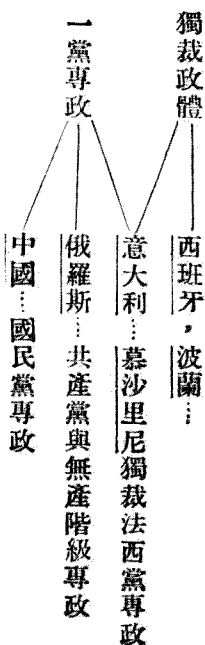 獨裁政體
西班牙，波蘭⋯
一黨專政
意大利⋯慕沙里尼獨裁法西黨專政
俄羅斯⋯共產黨與無產階級專政
中國⋯國民黨專政